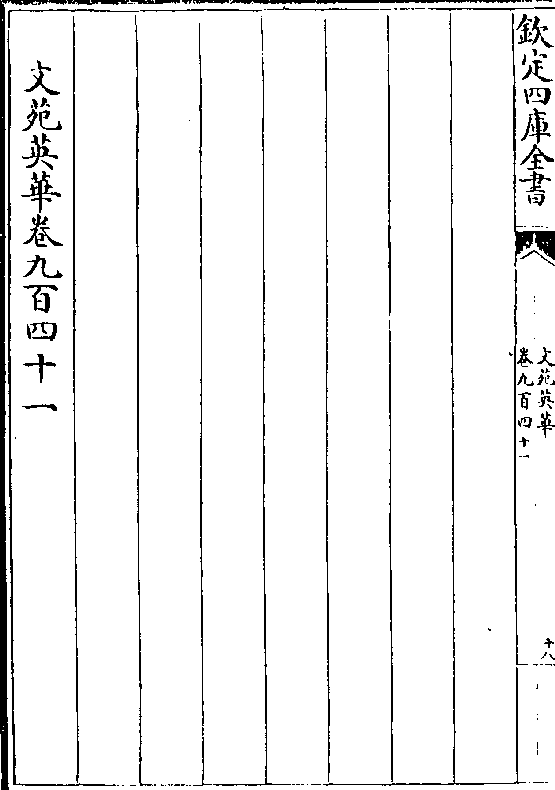 欽定四庫全書
文苑英華
卷九百四十一
十八
文苑英華卷九百四十一